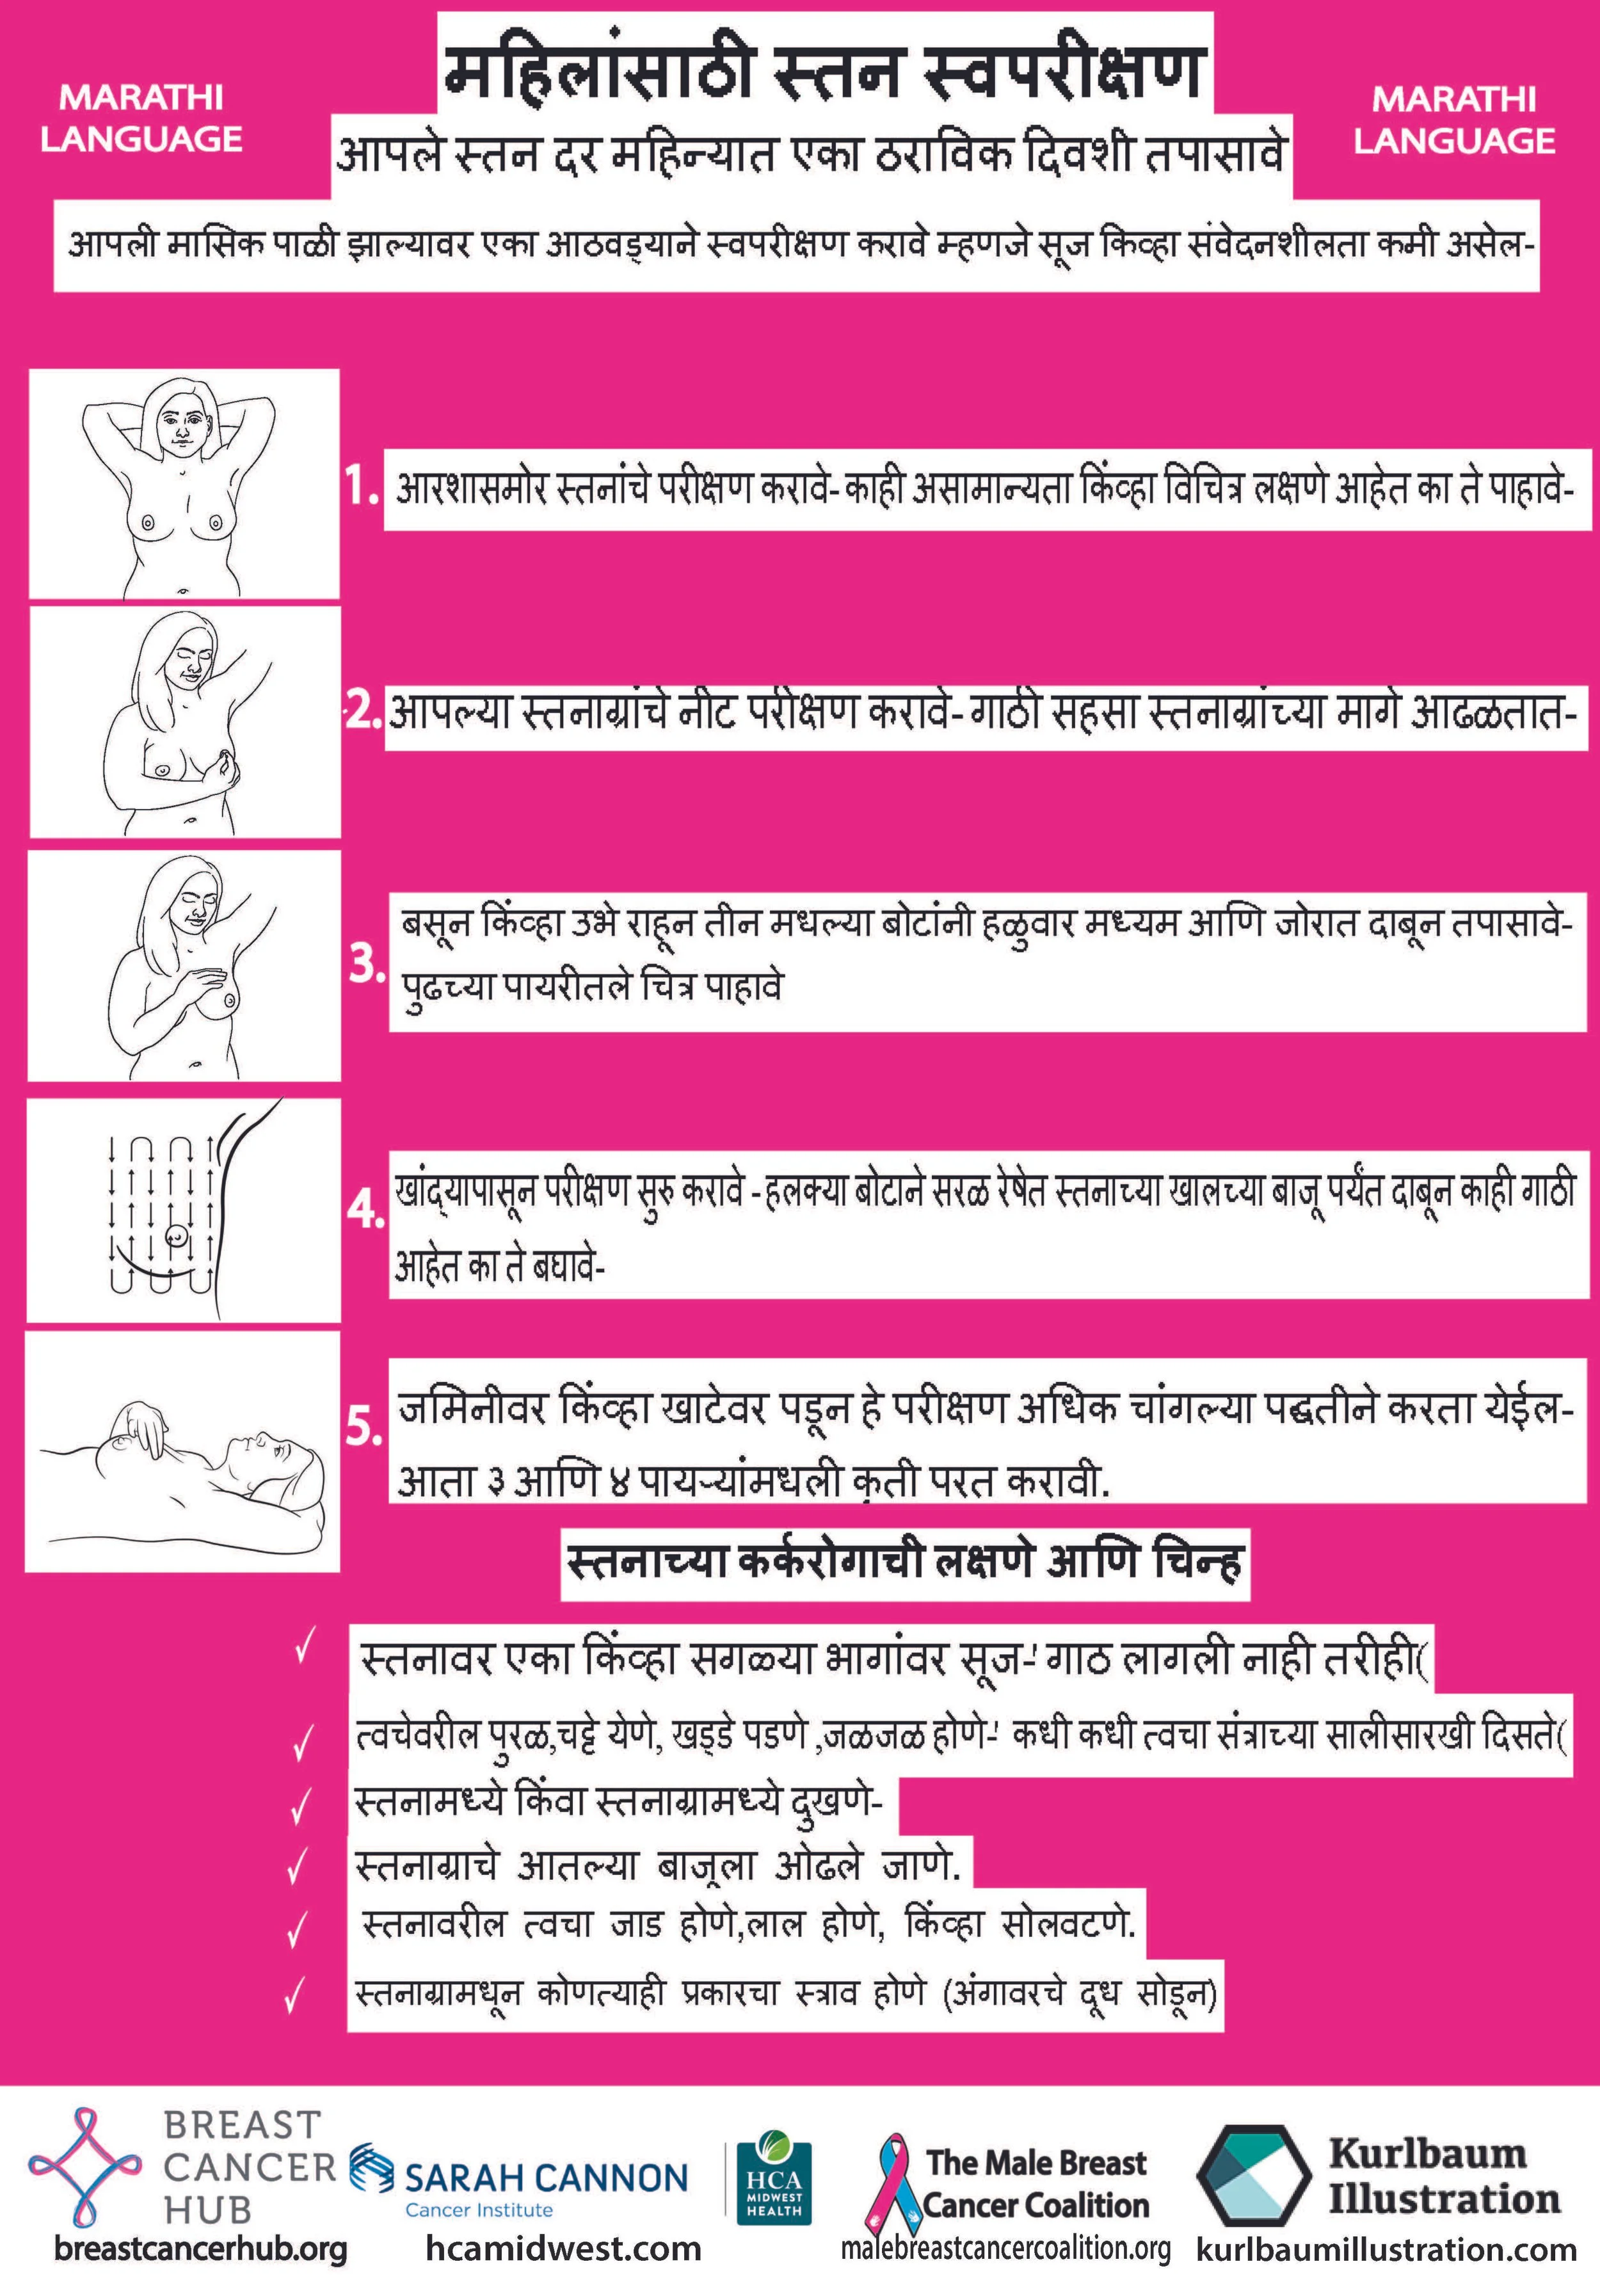 महिलांसाठी स्तन स्वपरीक्षण
MARATHI
LANGUAGE
MARATHI
LANGUAGE
आपले स्तन दर महिन्यात एका ठराविक दिवशी तपासावे
आपली मासिक पाळी झाल्यावर एका आठवड्याने स्वपरीक्षण करावे म्हणजे सूज किंव्हा संवेदनशीलता कमी असेल-
1. आरशासमोर स्तनांचे परीक्षण करावे- काही असामान्यता किंव्हा विचित्र लक्षणे आहेत का ते पाहावे-
2. आपल्या स्तनाग्रांचे नीट परीक्षण करावे- गाठी सहसा स्तनाग्रांच्या मागे आढळतात-
3. बसून किंव्हा उभे राहून तीन मधल्या बोटांनी हळुवार मध्यम आणि जोरात दाबून तपासावे-
पुढच्या पायरीतले चित्र पाहावे
4. खांद्यापासून परीक्षण सुरु करावे - हलक्या बोटाने सरळ रेषेत स्तनाच्या खालच्या बाजू पर्यंत दाबून काही गाठी
आहेत का ते बघावे-
5. जमिनीवर किंव्हा खाटेवर पडून हे परीक्षण अधिक चांगल्या पद्धतीने करता येईल-
आता ३ आणि ४ पायऱ्यांमधली कृती परत करावी.
स्तनाच्या कर्करोगाची लक्षणे आणि चिन्ह
✓ स्तनावर एका किंव्हा सगळ्या भागांवर सूज-' गाठ लागली नाही तरीही(
✓ त्वचेवरील पुरळ,चट्टे येणे, खड्डे पडणे ,जळजळ होणे-' कधी कधी त्वचा संत्राच्या सालीसारखी दिसते(
✓ स्तनामध्ये किंवा स्तनाग्रामध्ये दुखणे-
✓ स्तनाग्राचे आतल्या बाजूला ओढले जाणे.
✓ स्तनावरील त्वचा जाड होणे,लाल होणे, किंव्हा सोलवटणे.
✓ स्तनाग्रामधून कोणत्याही प्रकारचा स्त्राव होणे (अंगावरचे दूध सोडून)
BREAST
CANCER
HUB
breastcancerhub.org
SARAH CANNON
Cancer Institute
HCA
MIDWEST
HEALTH
hcamidwest.com
The Male Breast
Cancer Coalition
malebreastcancercoalition.org
Kurlbaum
Illustration
kurlbaumillustration.com